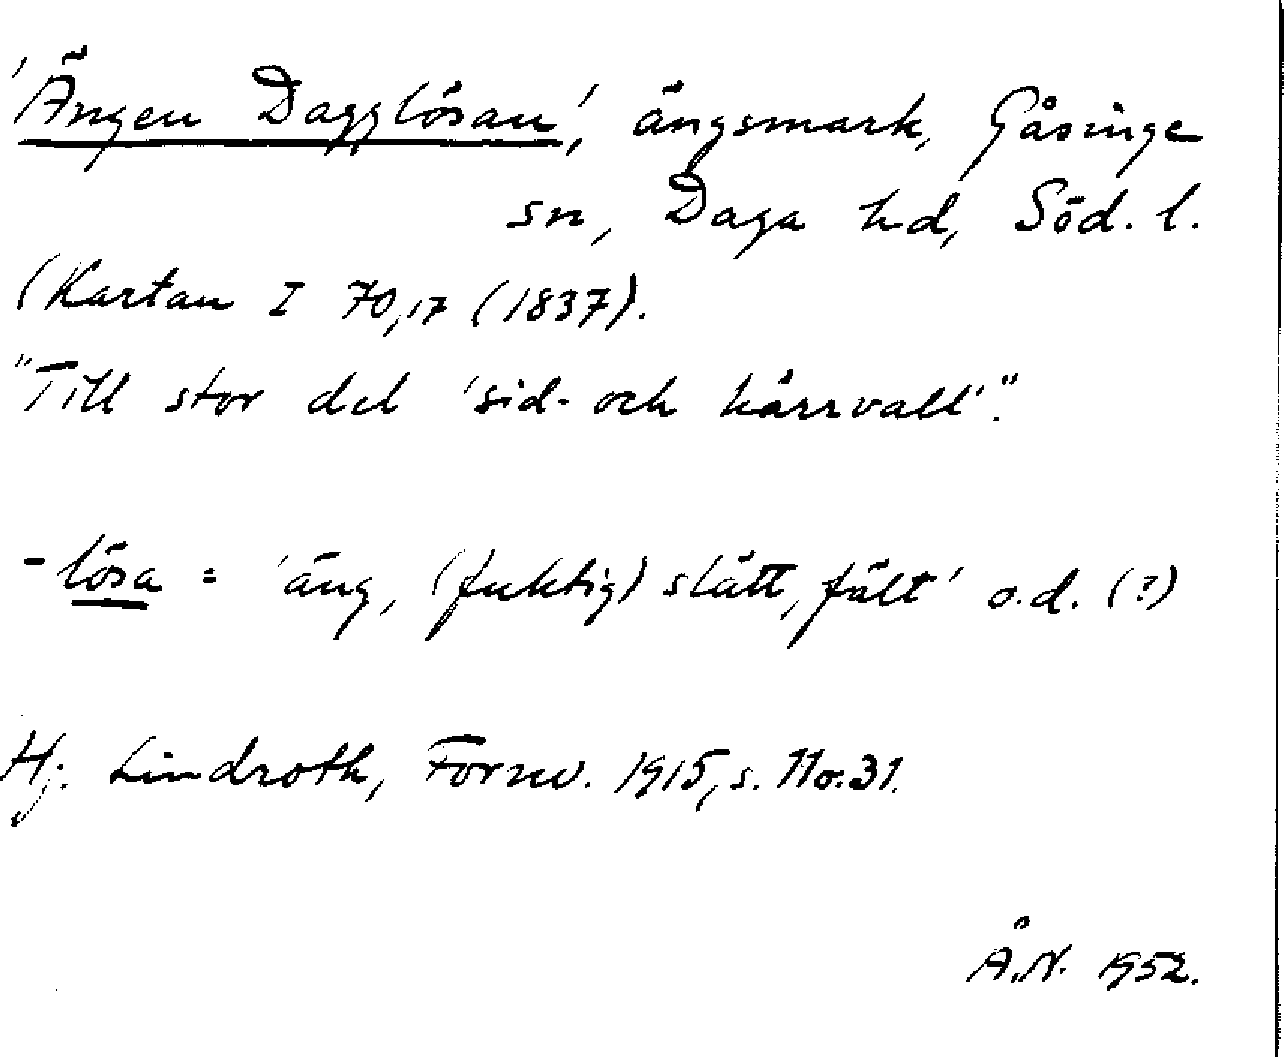 'Ängen Dagglösan', ängsmark, Gåsinge
sn, Daga hd, Söd. l.
(Kartan I 70,17 (1837).
"Till stor del 'sid- och kärrvall'."
-lösa = 'äng, (fuktig) slätt, fält' o.d. (?)
Hj. Lindroth, Fornv. 1915, s. 11 o. 31.
Å.N. 1952.